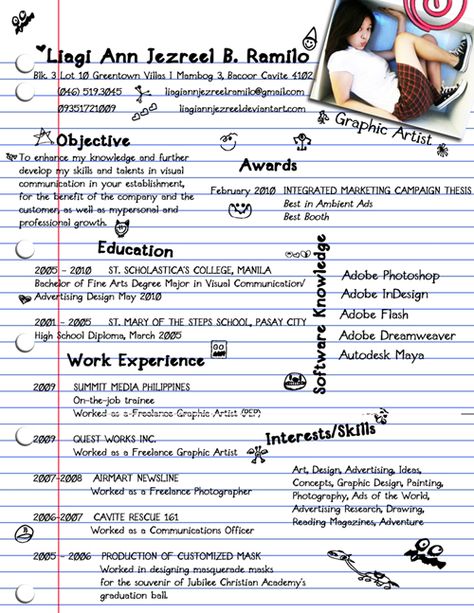 Liagi Ann Jezreel B. Ramilo
Blk. 3 Lot 10 Greentown Villas I Mambog 3, Bacoor Cavite 4102
(046) 519.3045 liagiannjezreelramilo@gmail.com
09351721009 liagiannjezreel.deviantart.com
Graphic Artist
Objective
To enhance my knowledge and further
develop my skills and talents in visual
communication in your establishment,
for the benefit of the company and the
customer, as well as mypersonal and
professional growth.
Awards
February 2010 INTEGRATED MARKETING CAMPAIGN THESIS
Best in Ambient Ads
Best Booth
Education
2005 - 2010 ST. SCHOLASTICA'S COLLEGE, MANILA
Bachelor of Fine Arts Degree Major in Visual Communication/
Advertising Design May 2010
2001 - 2005 ST. MARY OF THE STEPS SCHOOL, PASAY CITY
High School Diploma, March 2005
Software Knowledge
Adobe Photoshop
Adobe InDesign
Adobe Flash
Adobe Dreamweaver
Autodesk Maya
Work Experience
2009 SUMMIT MEDIA PHILIPPINES
On-the-job trainee
Worked as a Freelance Graphic Artist (PEP)
2009 QUEST WORKS INC.
Worked as a Freelance Graphic Artist
2007-2008 AIRMART NEWSLINE
Worked as a Freelance Photographer
2006-2007 CAVITE RESCUE 161
Worked as a Communications Officer
2005 - 2006 PRODUCTION OF CUSTOMIZED MASK
Worked in designing masquerade masks
for the souvenir of Jubilee Christian Academy's
graduation ball.
Interests/Skills
Art, Design, Advertising, Ideas,
Concepts, Graphic Design, Painting,
Photography, Ads of the World,
Advertising Research, Drawing,
Reading Magazines, Adventure